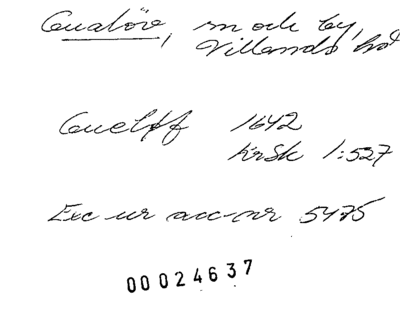 Gualöv, sn och by,
Villands hd
Guelff 1642
KrSk 1:527
Exc ur acc-nr 5475
00024637